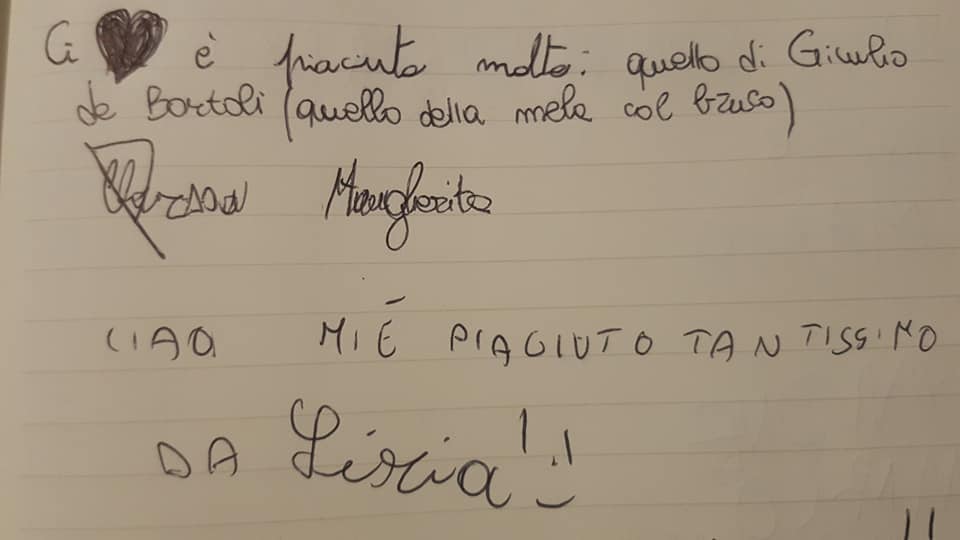 Ci è piaciuto molto: quello di Giulio
de Bortoli (quello della mela col bruco)
Margherita
CIAO MI É PIACIUTO TANTISSIMO
DA Licia!!